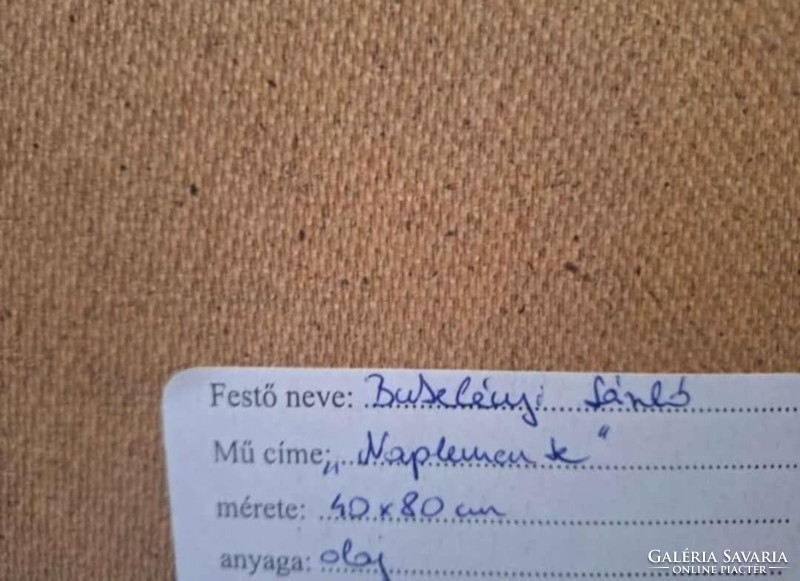 Festő neve: László
Mű címe: „Naplemente"
mérete: 40 x 80 cm
anyaga: olaj
GALÉRIA SAVARIA
ONLINE PIACTÉR